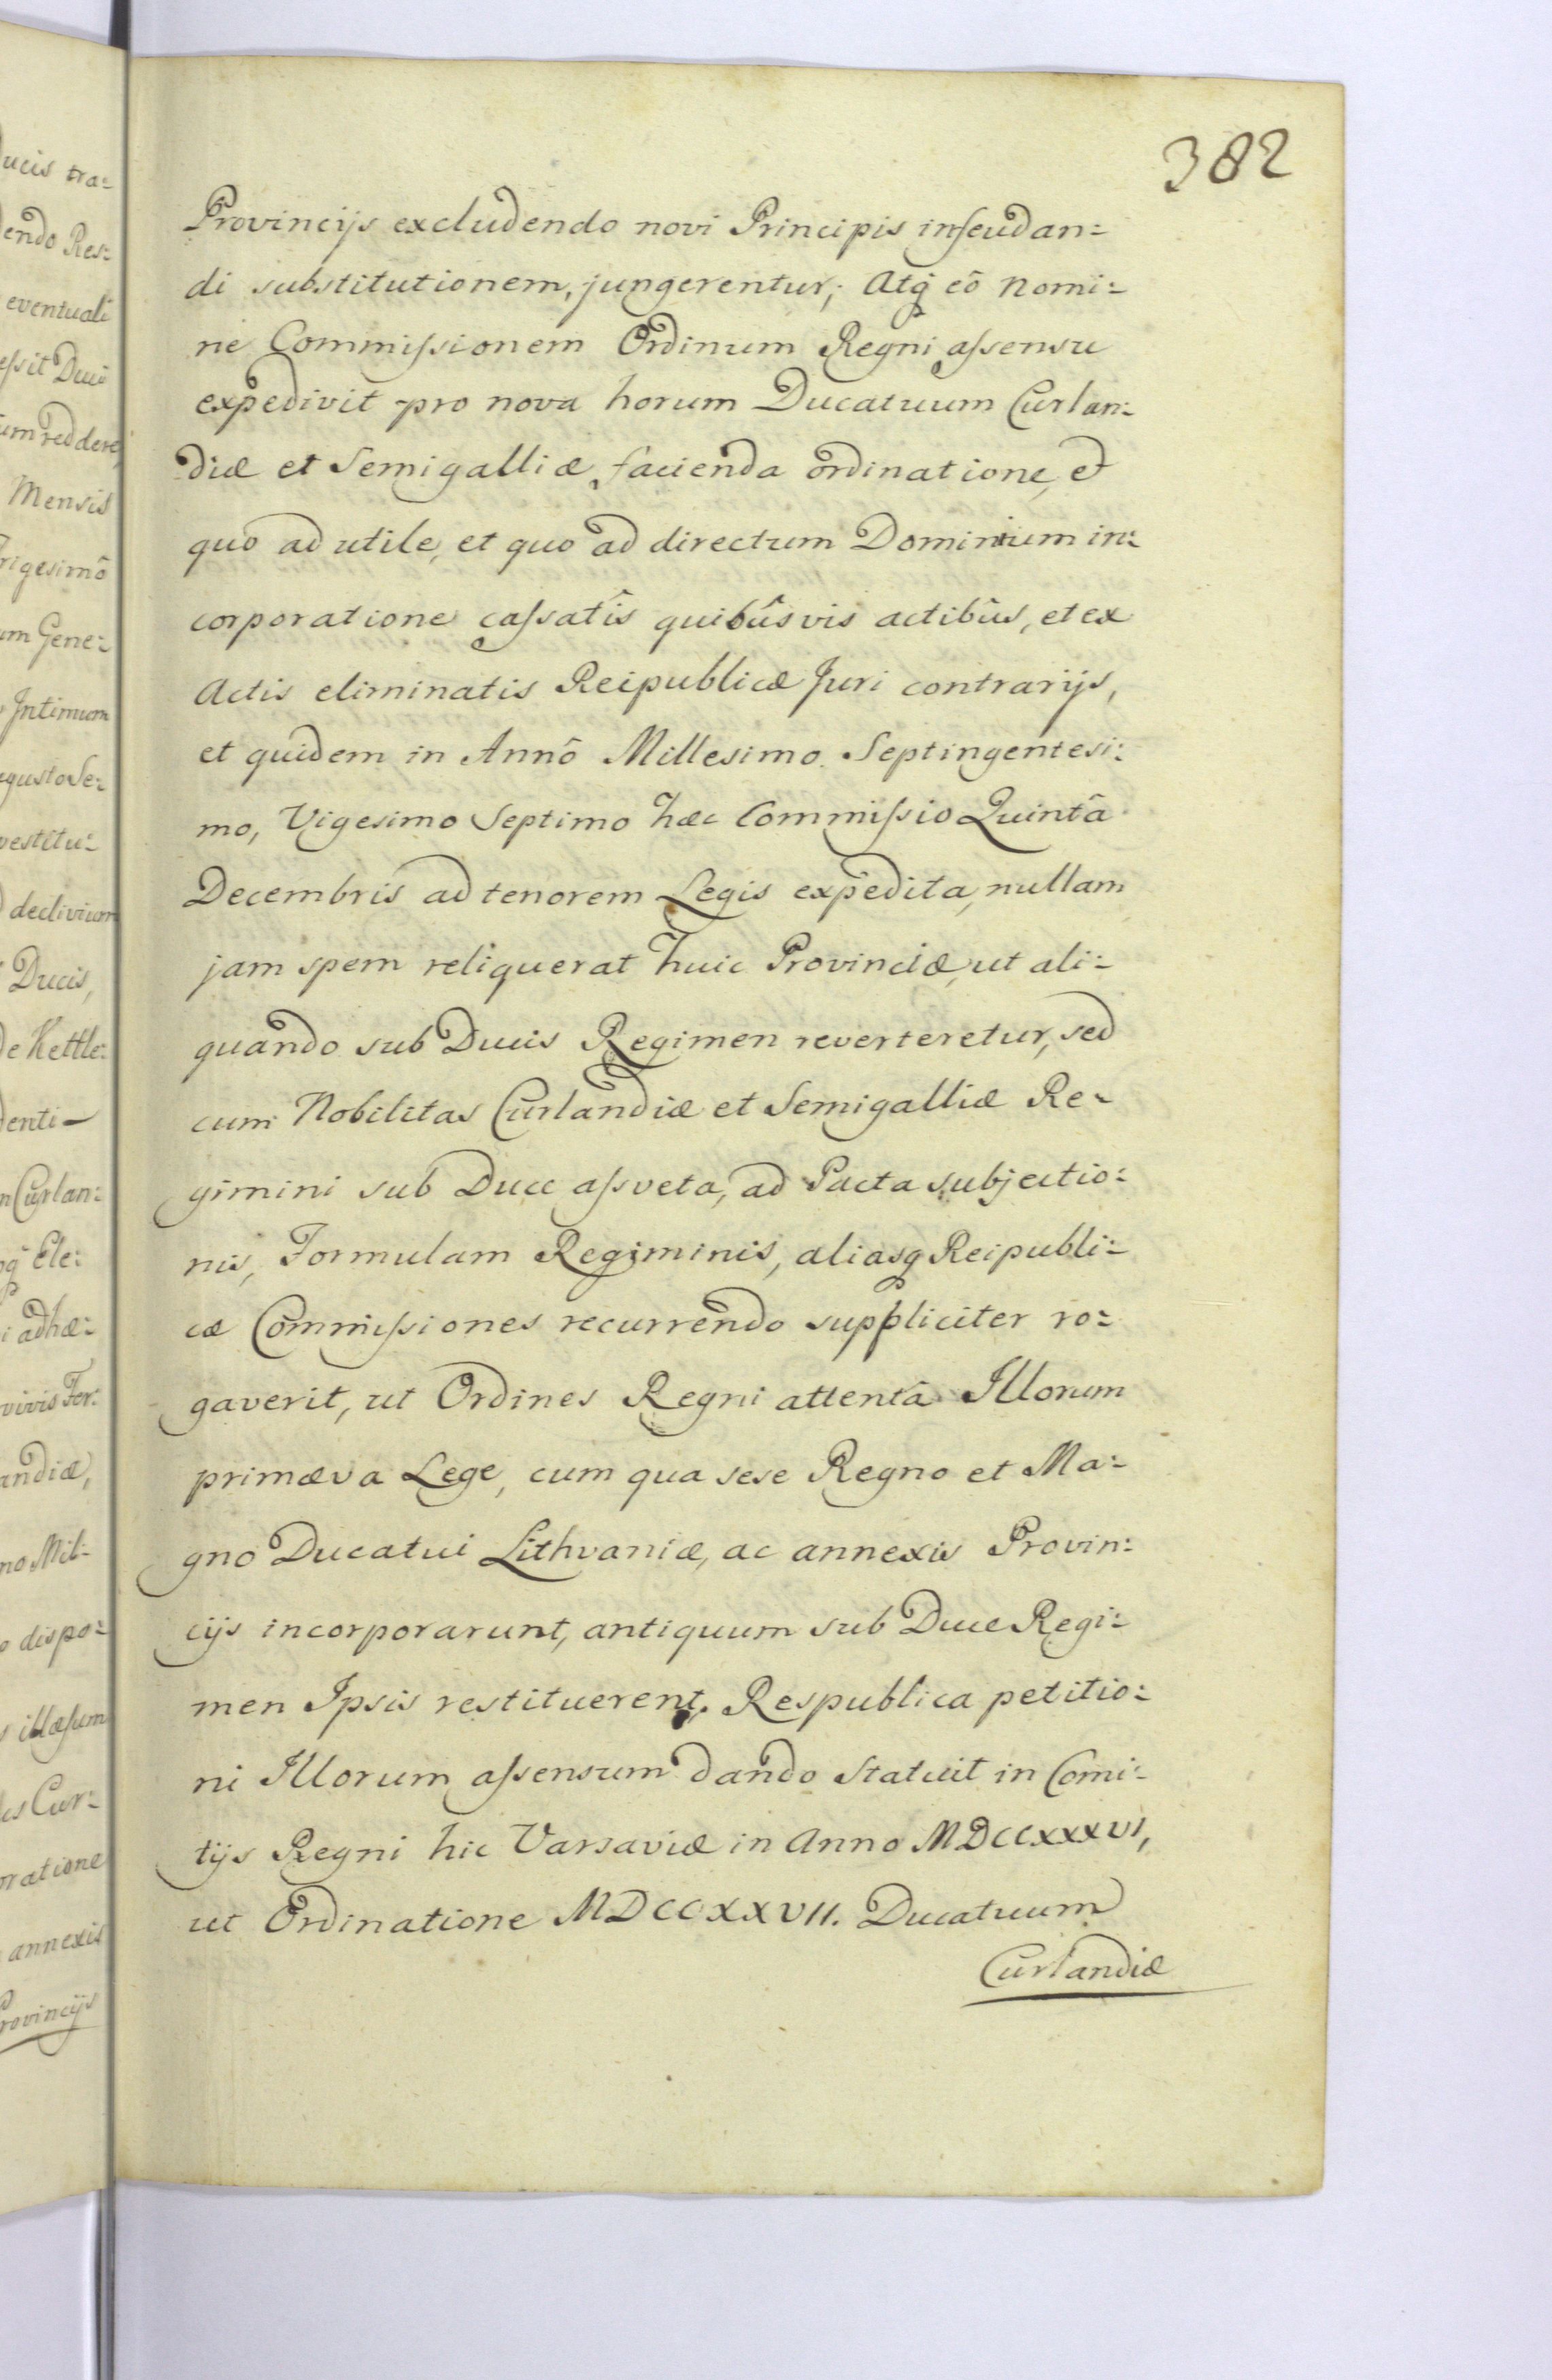 382
Provincijs excludendo novi Principis infeudan=
di substitutionem, jungerentur; Atq́ eô Nomi=
ne Commissionem Ordinum Regni assensu
expedivit pro nova horum Ducatuum Curlan=
diæ et Semigalliæ facienda ordinatione, et
quo ad utile, et quo ad directum Dominium in=
corporatione cassatîs quibûsvis actibûs, et ex
Actis eliminatis Reipublicæ Juri contrarijs,
et quidem in Annô Millesimo Septingentesi=
mo, Vigesimo Septimo hæc Commissio Quintâ
Decembris ad tenorem Legis expedita, nullam
jam spem reliquerat huic Provinciæ, ut ali=
quando sub Ducis Regimen reverteretur, sed
cum Nobilitas Curlandiæ et Semigalliæ Re=
gimini sub Duce assveta, ad Pacta subjectio=
nis, Formulam Regiminis, aliasq Reipubli=
cæ Commissiones recurrendo suppliciter ro=
gaverit, ut Ordines Regni attentâ Illorum
primæva Lege, cum qua sese Regno et Ma=
gno Ducatui Lithvaniæ, ac annexis Provin=
cijs incorporarunt, antiquum sub Duce Regi=
men Ipsis restituerent. Respublica petitio=
ni Illorum assensum dando Statuit in Comi=
tijs Regni hic Varsaviæ in Anno MDCCXXXVI,
ut Ordinatione MDCCXXVII. Ducatuum
Curlandiæ